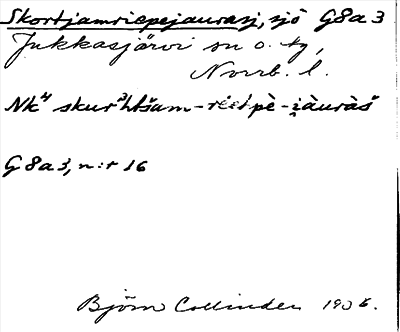 Skortjamriepejaurasj, sjö G8a3
Jukkasjärvi sn o. tg,
Norrb. l.
Nk⁴ skur³htšam-riepè-i̯àuràš
G8a3, n:r 16
Björn Collinder